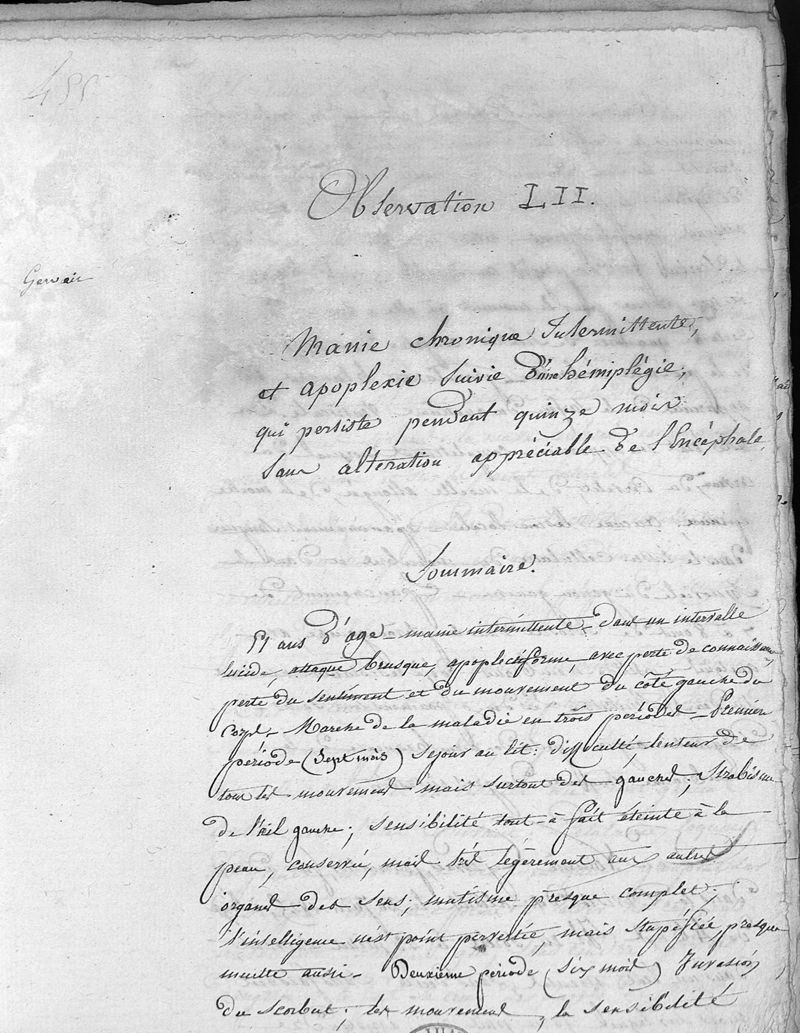 455
Observation LII.
Gervais
Manie chronique Intermittente,
et apoplexie suivie d'une hémiplégie,
qui persiste pendant quinze mois
sans altération appréciable de l'Encéphale.
Sommaire.
51 ans d'age - manie intermittente - dans un intervalle
lucide, attaque brusque, apoplectiforme, avec perte de connaissance,
perte du sentiment et du mouvement du côté gauche du
corps - Marche de la maladie en trois périodes - Première
période (sept mois) séjour au lit : difficulté, lenteur de
tous les mouvements mais surtout des gauches, Strabisme
de l'œil gauche ; sensibilité tout à fait éteinte à la
peau, conservée, mais très légèrement aux autres
organes des sens ; mutisme presque complet ;
l'intelligence n'est point pervertie, mais stupéfiée, presque
muette aussi - Deuxième période (six mois) Invasion
du scorbut ; les mouvements, la sensibilité